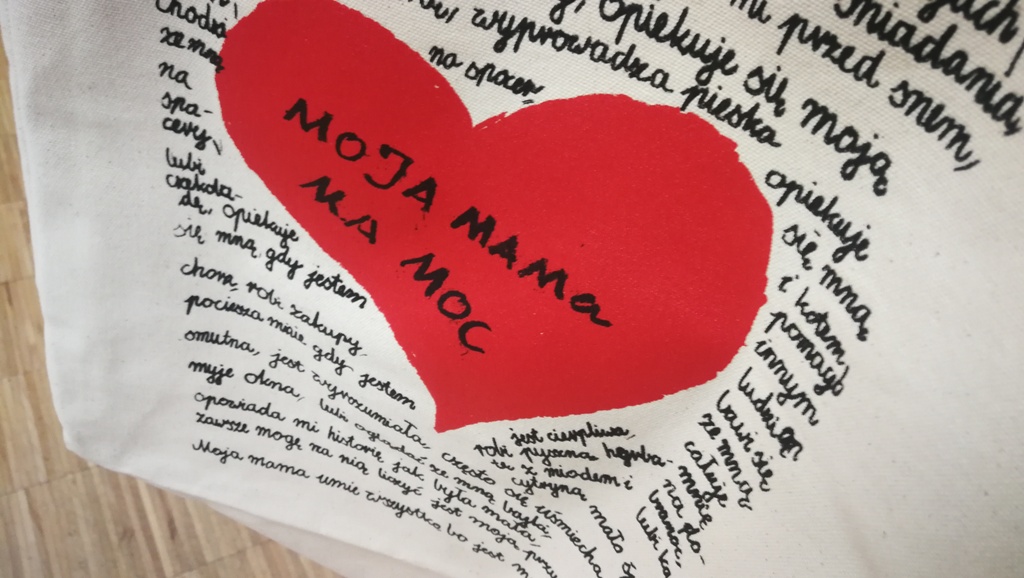 śniadania,
mi przed snem,
opiekuje się moją
wyprowadza pieska
na spacer,
chodzi
ze mną
na
spa-
cery,
lubi
czekola-
dę, opiekuje
się mną gdy jestem
chora, robi zakupy,
pociesza mnie gdy jestem
smutna, jest wyrozumiała,
myje okna, lubi oglądać ze mną bajki,
opowiada mi historie, jak była mała,
zawsze mogę na nią liczyć, jest moją
Moja mama umie wszystko bo jest
MOJA MAMA
MA MOC
opiekuje
się mną
i kotem,
pomaga
innym
ludziom
bawi się
ze mną
całuje
mnie
na do-
branoc,
lubi
jest cierpliwa,
robi pyszną herba-
tę z miodem i
cytryną
często się uśmiecha
mało